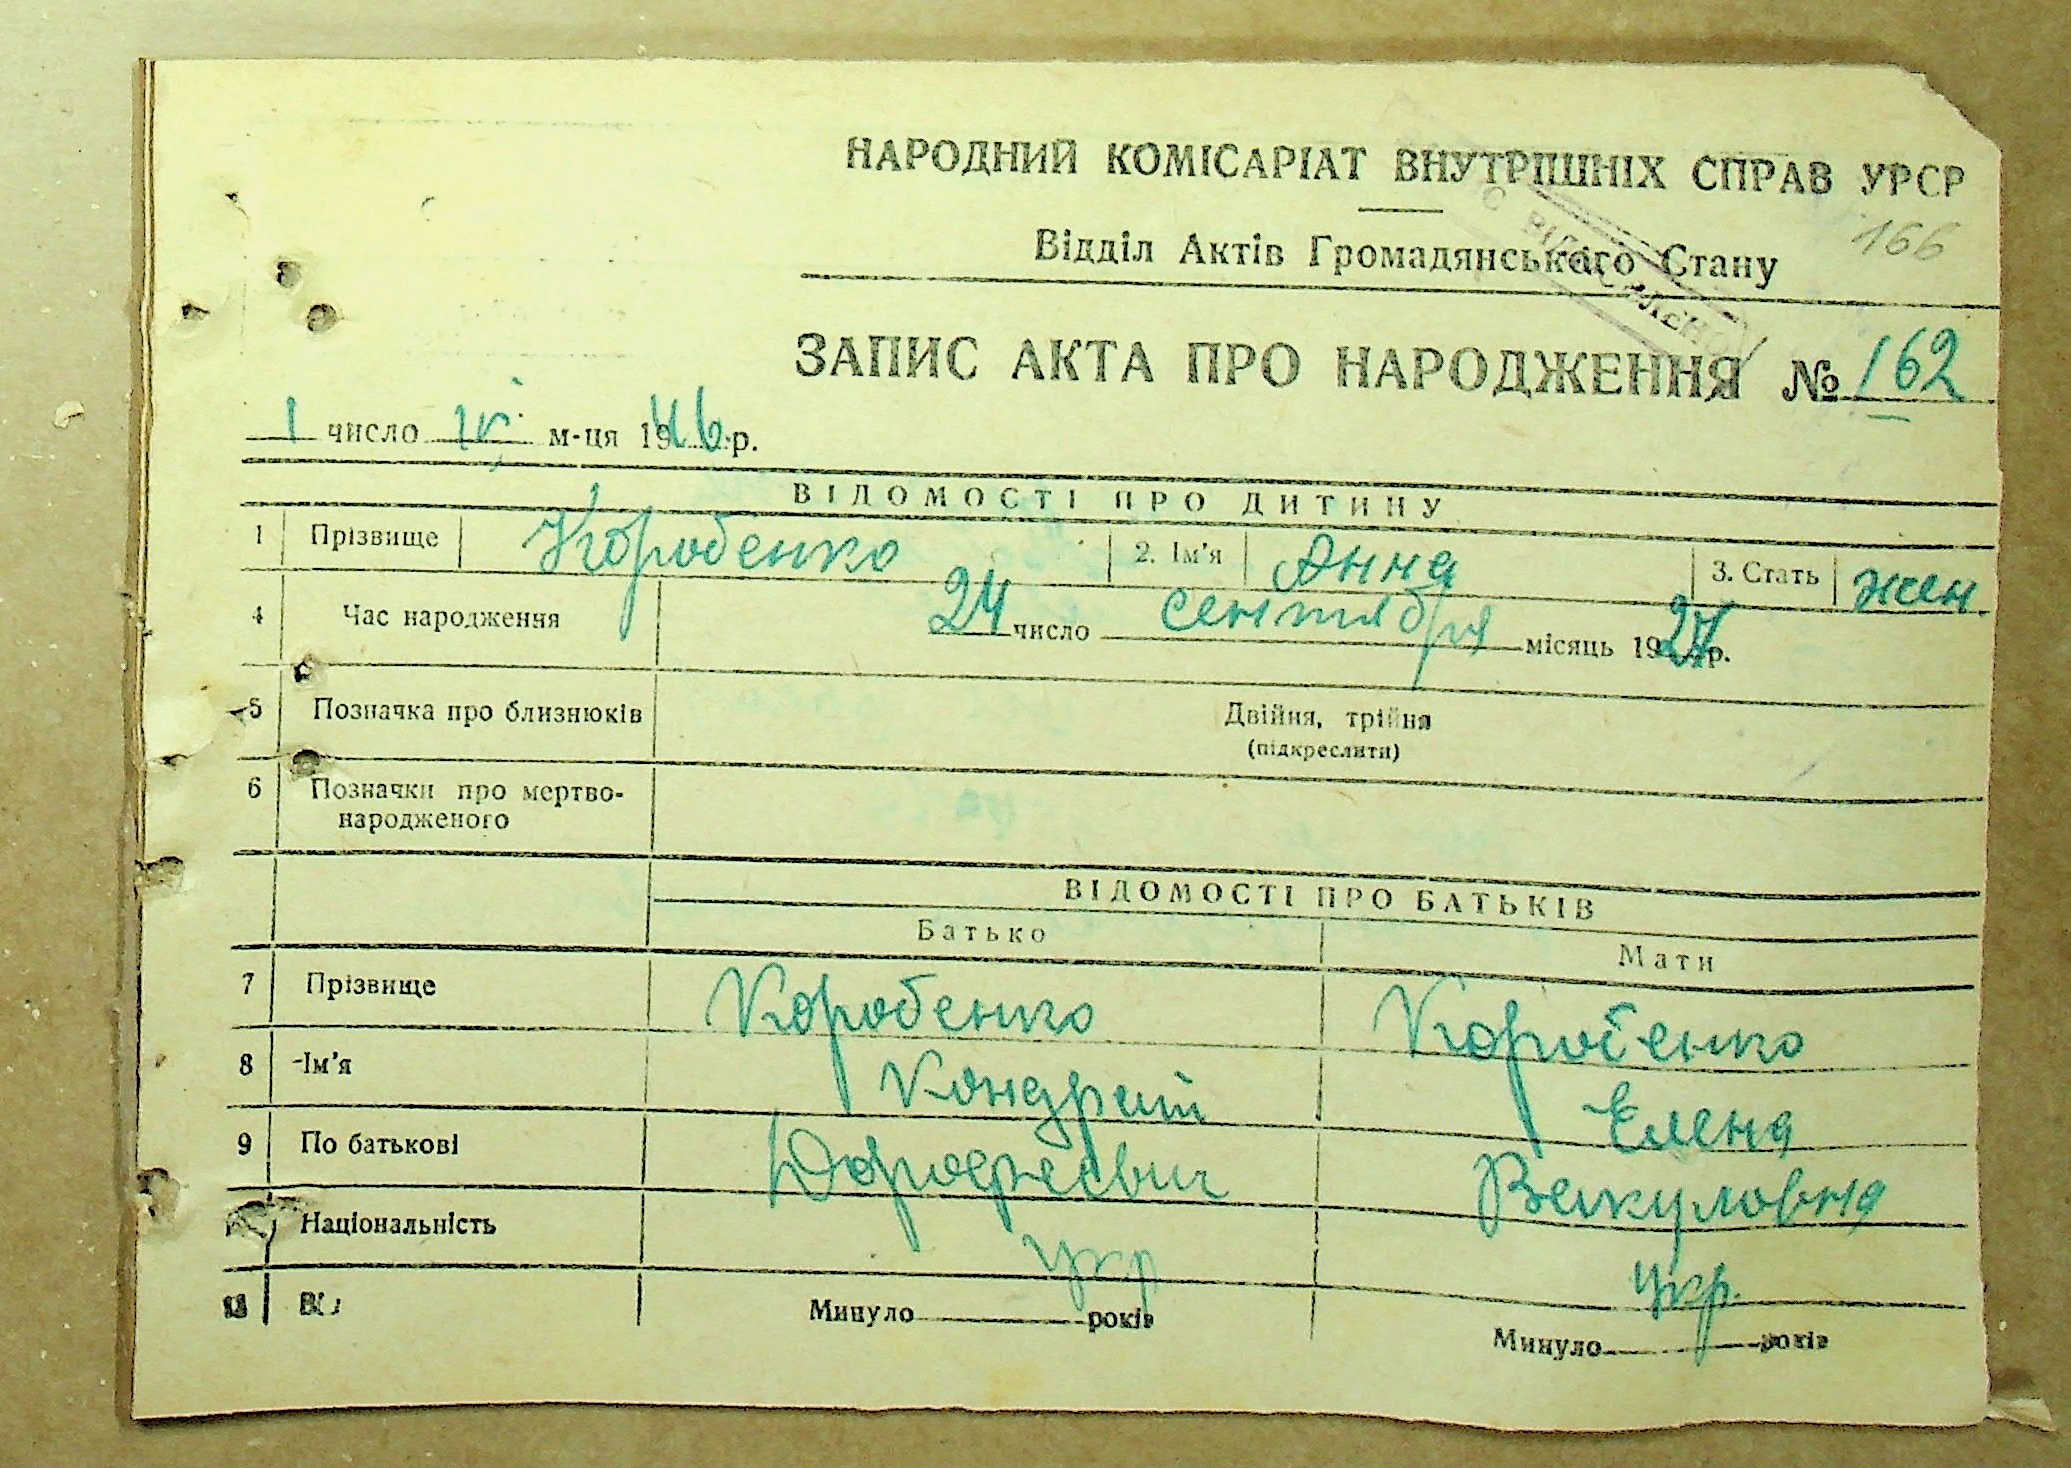 НАРОДНИЙ КОМІСАРІАТ ВНУТРІШНІХ СПРАВ УРСР
166
Відділ Актів Громадянського Стану
ВІДНОВЛЕНО
ЗАПИС АКТА ПРО НАРОДЖЕННЯ № 162
1 число IV м-ця 1946 р.
ВІДОМОСТІ ПРО ДИТИНУ
1 Прізвище Коробенко 2. Ім'я Анна 3. Стать жен
4 Час народження 24 число сентября місяць 1927 р.
5 Позначка про близнюків Двійня, трійня
(підкреслити)
6 Позначки про мертво-
народженого
ВІДОМОСТІ ПРО БАТЬКІВ
Батько Мати
7 Прізвище Коробенко Коробенко
8 Ім'я Кондрат Елена
9 По батькові Дорофеевич Вакуловна
Національність укр укр.
Минуло років Минуло років